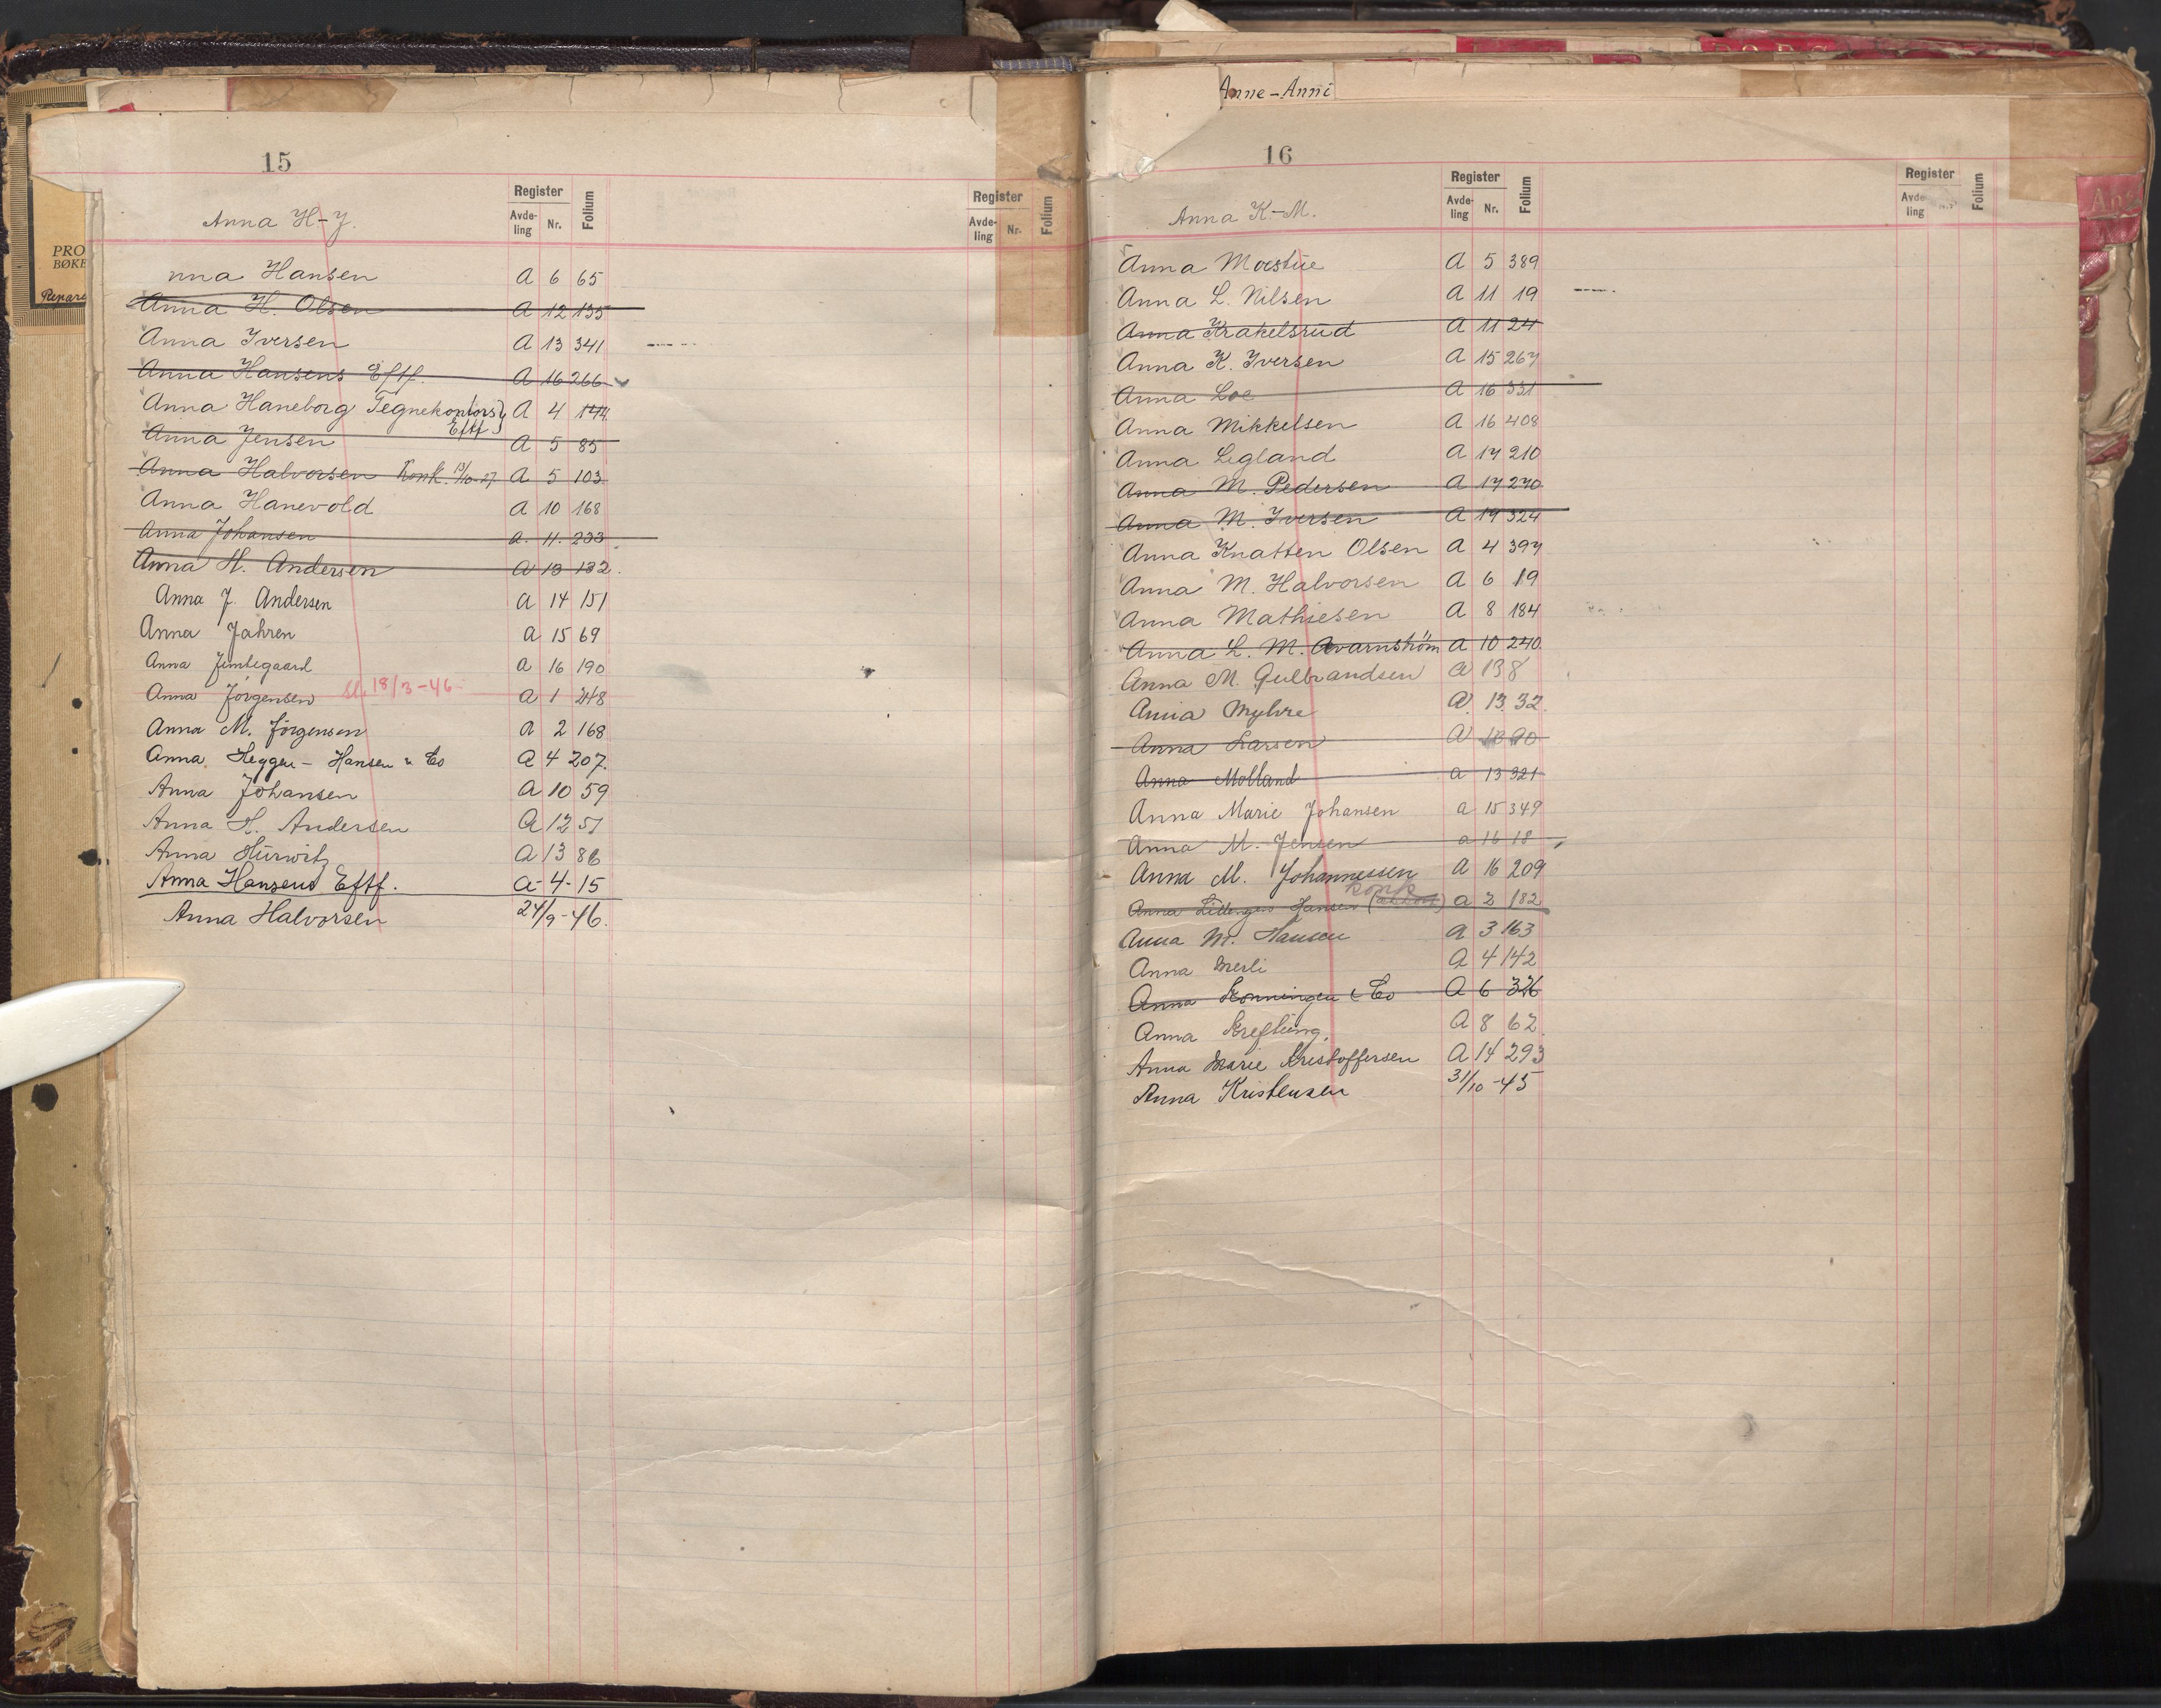 PRO
BØKE
Repare
15
Register
Avde-
ling
Nr.
Folium
Anna H-J.
Register
Avde-
ling
Nr.
Folium
nna Hansen A 6 65
Anna H. Olsen A 12 135
Anna Iversen A 13 341
Anna Hansens Eftf. A 16 266
Anna Haneborg Tegnekontors A 4 144
Eftf
Anna Jensen A 5 85
Anna Halvorsen Konk. A 5 103
Anna Hanevold A 10 168
Anna Johansen a. 11. 233
Anna H. Andersen a 13 132.
Anna J. Andersen a 14 151
Anna Jahren a 15 69
Anna a 16 190
Anna Jørgensen Sl. 18/3-46 a 1 248
Anna M. Jørgensen a 2 168
Anna Heggen - Hansen & Co a 4 207.
Anna Johansen a 10 59
Anna H. Andersen a 12 51
Anna Hurwitz a 13 86
Anna Hansens Eftf. a-4-15
Anna Halvorsen 24/9-46.
Anne-Anni
16
Register
Avde-
ling
Nr.
Folium
Anna K-M.
Register
Avde
ling
Folium
Anna Moestue A 5 389
Anna L. Nilsen A 11 19
Anna Krakelsrud A 11 24
Anna K. Iversen A 15 267
Anna Loe A 16 331
Anna Mikkelsen A 16 408
Anna Legland A 17 210
Anna M. Pedersen A 17 270
Anna M. Iversen A 19 324
Anna Knatten Olsen A 4 397
Anna M. Halvorsen A 6 19
Anna Mathiesen A 8 184
Anna L. M. a 10 240.
Anna M. Gulbrandsen a 13 8
Anna Myhre a. 13. 32.
Anna Larsen a 90
Anna Molland a 13 321
Anna Marie Johansen a 15 349
Anna M. Jensen a 16 18
Anna M. Johannessen A 16 209
konk
Anna Hansen a 2 182
Anna M. Hansen a 3 163
Anna Merli a 4 142
Anna & Co a 6 326
Anna Krefting. a 8 62
Anna Marie Kristoffersen a 14 293
Anna Kristensen 31/10-45